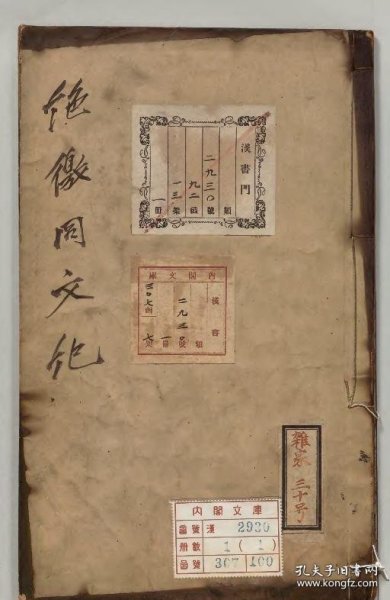 絶徼同文紀
漢書門
類
二九三〇號
九二函
一三架
一冊
內閣文庫
漢書
二九三〇
類
號
一冊
三〇七函
七架
雜家 三十号
内閣文庫
番號 漢 2930
册數 1 ( 1 )
函號 307 100
孔夫子旧书网
www.kongfz.com